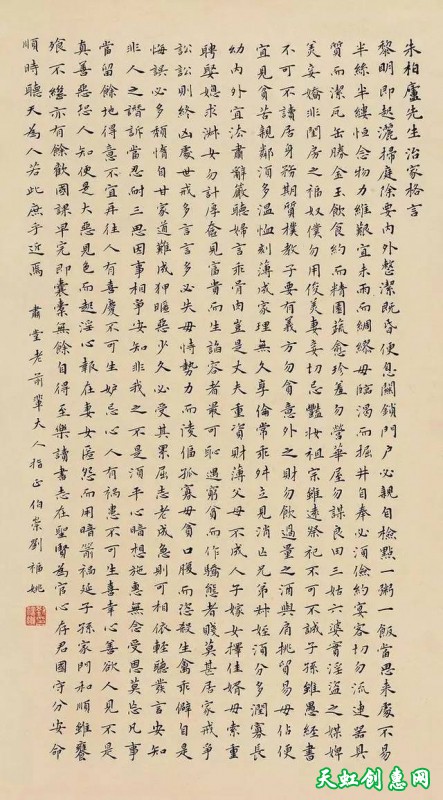 朱柏廬先生治家格言
黎明即起灑掃庭除要內外整潔既昏便息關鎖門戶必親自檢點一粥一飯當思來處不易
半絲半縷恒念物力維艱宜未雨而綢繆毋臨渴而掘井自奉必須儉約宴客切勿流連器具
質而潔瓦缶勝金玉飲食約而精園蔬愈珍羞勿營華屋勿謀良田三姑六婆實淫盜之媒婢
美妾嬌非閨房之福奴僕勿用俊美妻妾切忌豔妝祖宗雖遠祭祀不可不誠子孫雖愚經書
不可不讀居身務期質樸教子要有義方勿貪意外之財勿飲過量之酒與肩挑貿易毋佔便
宜見貧苦親鄰須多溫恤刻薄成家理無久享倫常乖舛立見消亡兄弟叔姪須分多潤寡長
幼內外宜法肅辭嚴聽婦言乖骨肉豈是丈夫重資財薄父母不成人子嫁女擇佳婿毋索重
聘娶媳求淑女勿計厚奩見富貴而生諂容者最可恥遇窮貧而作驕態者賤莫甚居家戒爭
訟訟則終凶處世戒多言言多必失毋恃勢力而凌逼孤寡毋貪口腹而恣殺生禽乖僻自是
悔誤必多頹惰自甘家道難成狎暱惡少久必受其累屈志老成急則可相依輕聽發言安知
非人之譖訴當忍耐三思因事相爭安知非我之不是須平心暗想施惠無念受恩莫忘凡事
當留餘地得意不宜再往人有喜慶不可生妒忌心人有禍患不可生喜幸心善欲人見不是
真善惡恐人知便是大惡見色而起淫心報在妻女匿怨而用暗箭禍延子孫家門和順雖饔
飧不繼亦有餘歡國課早完即囊橐無餘自得至樂讀書志在聖賢為官心存君國守分安命
順時聽天為人若此庶乎近焉 肅堂老前輩大人指正 伯崇劉福姚
天虹创惠网